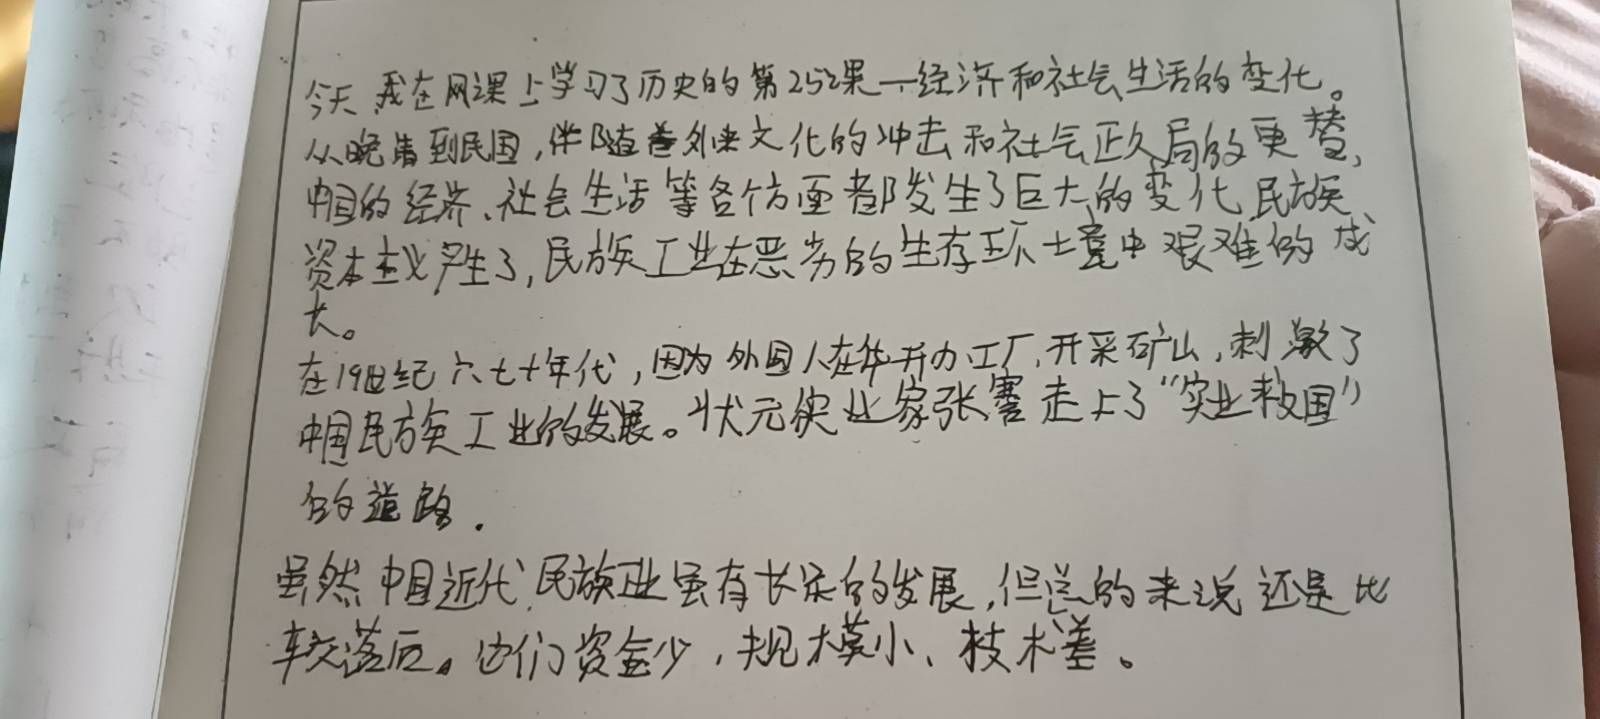 今天,我在网课上学习了历史的第25课—经济和社会生活的变化。
从晚清到民国,伴随着外来文化的冲击和社会政局的更替,
中国的经济、社会生活等各个方面都发生了巨大的变化,民族
资本主义产生了,民族工业在恶劣的生存环境中艰难的成
长。
在19世纪六七十年代,因为外国人在华开办工厂,开采矿山,刺激了
中国民族工业的发展。状元实业家张謇走上了“实业救国”
的道路.
虽然中国近代民族工业虽有长足的发展,但总的来说还是比
较落后。他们资金少,规模小、技术差。